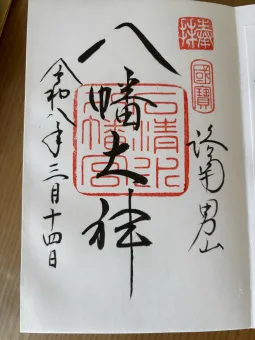 奉拝
國寶
詣男山
八幡大神
石清水
八幡宮
令和八年三月十四日